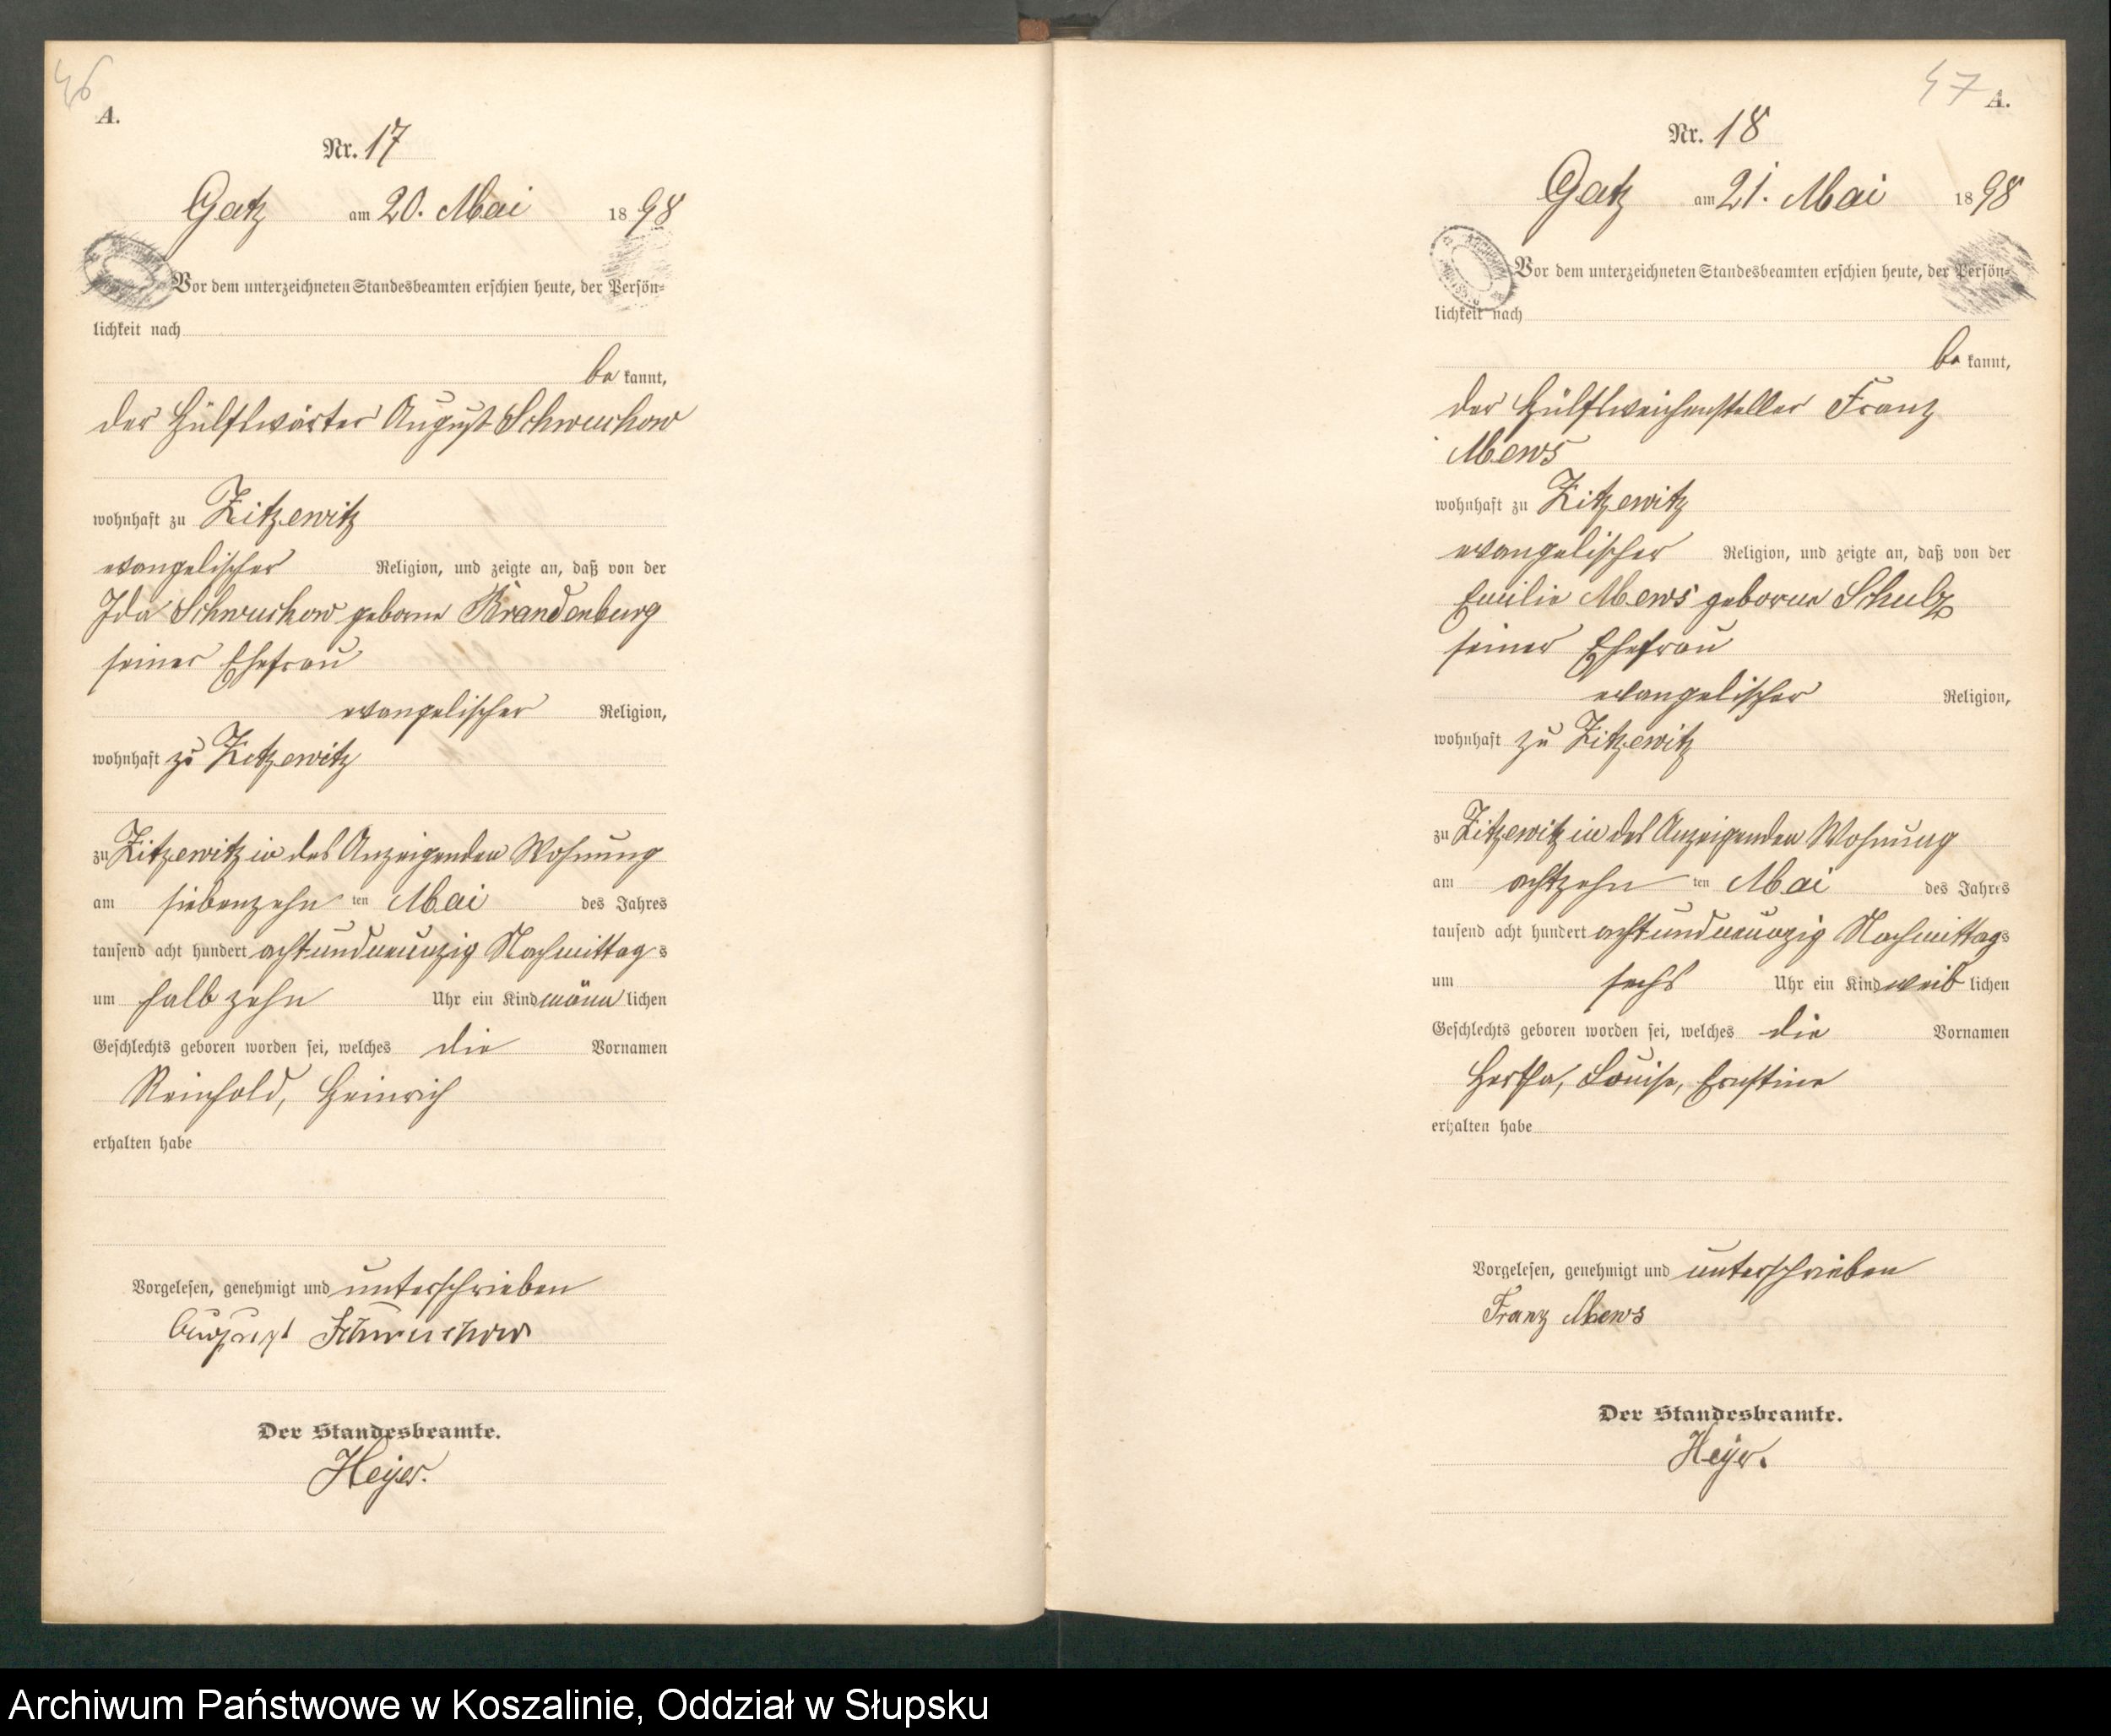 46
A.
Nr. 17
Gatz am 20. Mai 1898
Vor dem unterzeichneten Standesbeamten erschien heute, der Persön-
lichkeit nach
be kannt,
der Hülfswärter August Schwuchow
wohnhaft zu Zitzewitz
evangelischer Religion, und zeigte an, daß von der
Ida Schwuchow geborne Brandenburg
seiner Ehefrau
evangelischer Religion,
wohnhaft zu Zitzewitz
zu Zitzewitz in des Anzeigenden Wohnung
am siebenzehn ten Mai des Jahres
tausend acht hundert achtundneunzig Nachmittag s
um halb zehn Uhr ein Kind männ lichen
Geschlechts geboren worden sei, welches die Vornamen
Reinhold, Heinrich
erhalten habe
Vorgelesen, genehmigt und unterschrieben
August Schwuchow
Der Standesbeamte.
Heyer.
47
A.
Nr. 18
Gatz am 21. Mai 1898
Vor dem unterzeichneten Standesbeamten erschien heute, der Persön-
lichkeit nach
be kannt,
der Hülfsweichensteller Franz
Mews
wohnhaft zu Zitzewitz
evangelischer Religion, und zeigte an, daß von der
Emilie Mews geborne Schulz
seiner Ehefrau
evangelischer Religion,
wohnhaft zu Zitzewitz
zu Zitzewitz in des Anzeigenden Wohnung
am achtzehn ten Mai des Jahres
tausend acht hundert achtundneunzig Nachmittag s
um sechs Uhr ein Kind weib lichen
Geschlechts geboren worden sei, welches die Vornamen
Hertha, Louise, Ernstine
erhalten habe
Vorgelesen, genehmigt und unterschrieben
Franz Mews
Der Standesbeamte.
Heyer.
Archiwum Państwowe w Koszalinie, Oddział w Słupsku